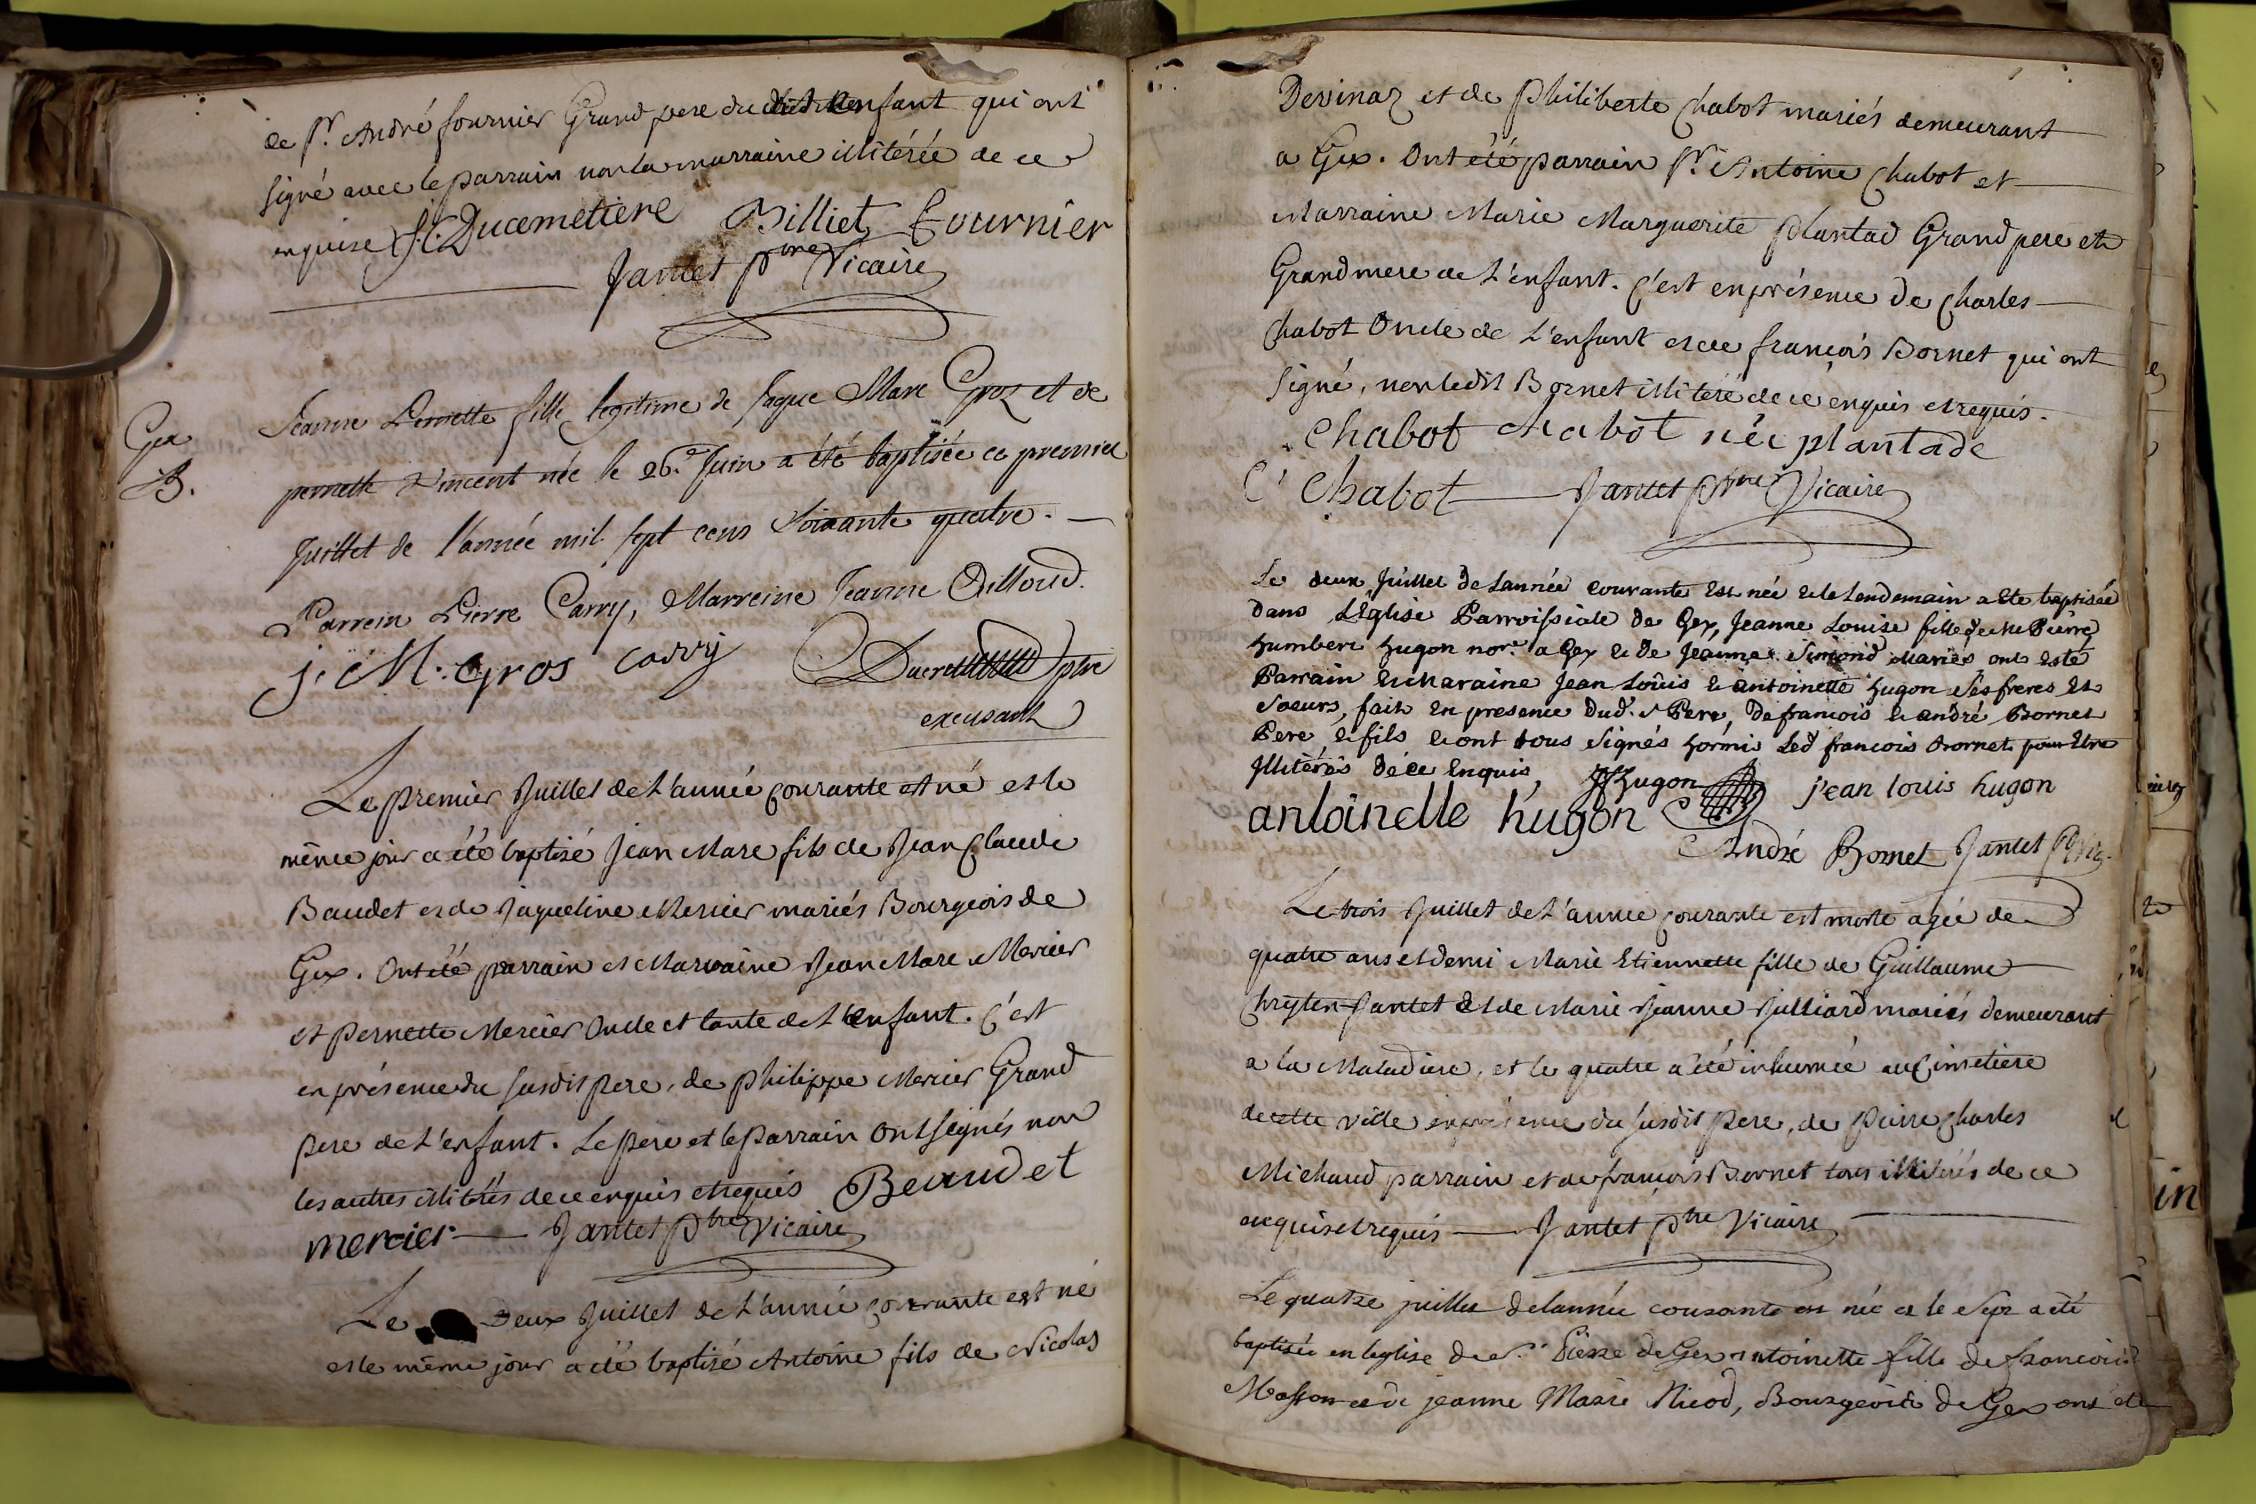 de Sr. André fournier Grand pere du dit enfant qui ont
signé avec le parrain non la marraine illitérée de ce
enquise J. C. Ducemetiere Billiet fournier
Jantet ptre Vicaire
Gex
B.
Jeanne Pernette fille legitime de Jaque Marc Groz et de
pernette Vincent née le 26e. Juin a été baptisée ce premier
Juillet de l'année mil sept cens soixante quatre.
Parrein Pierre Carry, Marreine Jeanne Dilloud.
j. M. gros carry Ducret ptre
excusant
Le premier Juillet de L'année courante est né et le
même jour a été baptisé Jean Marc fils de Jean Claude
Baudet et de Jaqueline Mercier mariés Bourgeois de
Gex. Ont été parrain et Marraine Jean Marc Mercier
et pernette Mercier Oncle et tante de L'enfant. C'est
en présence du susdit pere, de philippe Mercier Grand
pere de L'enfant. Le pere et le parrain ont signés non
les autres illitérés de ce enquis et requis Beaudet
mercier Jantet ptre Vicaire
Le Deux Juillet de L'année courante est né
et le même jour a été baptisé Antoine fils de Nicolas
Devinaz et de philiberte Chabot mariés demeurant
a Gex. Ont été parrain Sr. Antoine Chabot et
Marraine Marie Marguerite plantad Grand pere et
Grand mere de L'enfant. C'est en présence de Charles
Chabot Oncle de L'enfant et de françois Bornet qui ont
signé, non ledit Bornet illitéré de ce enquis et requis.
Chabot chabot née plantade
C Chabot Jantet ptre Vicaire
Le deux Juillet de Lannée courante Est née et le Lendemain a Ete baptiseé
dans L'Eglise Parroissiale de Gex, Jeanne Louise fille de Me Pierre
humbert hugon nore. a Gex et De Jeanne Simond Mariés ont Esté
Parrain et Maraine Jean Loüis et antoinette hugon Ses freres Et
Soeurs, fait En presence Dud. S Pere, De françois et andré Bornet
Pere et fils et ont tous Signés hormis Led françois Bornet pour Etre
Illitérés de ce Enquis, hugon jean louis hugon
antoinette hugon
André Bornet Jantet
Le trois Juillet de L'année courante est morte agée de
quatre ans et demi Marie Etiennette fille de Guillaume
Jantet et de Marie Jeanne Julliard mariés demeurant
a la Maladiere, et le quatre a été inhumée au Cimetiere
de cette ville en présence du susdit pere, de pierre Charles
Michaud parrain et de françois Bornet tous illitérés de ce
enquis et requis Jantet ptre Vicaire
Le quatre juillet de lannée courante est née et le Sept a été
baptisée en leglise de St. Pierre de Gex antoinette fille de françois
Masson et de jeanne Marie Nicod, Bourgeois de Gex ont été